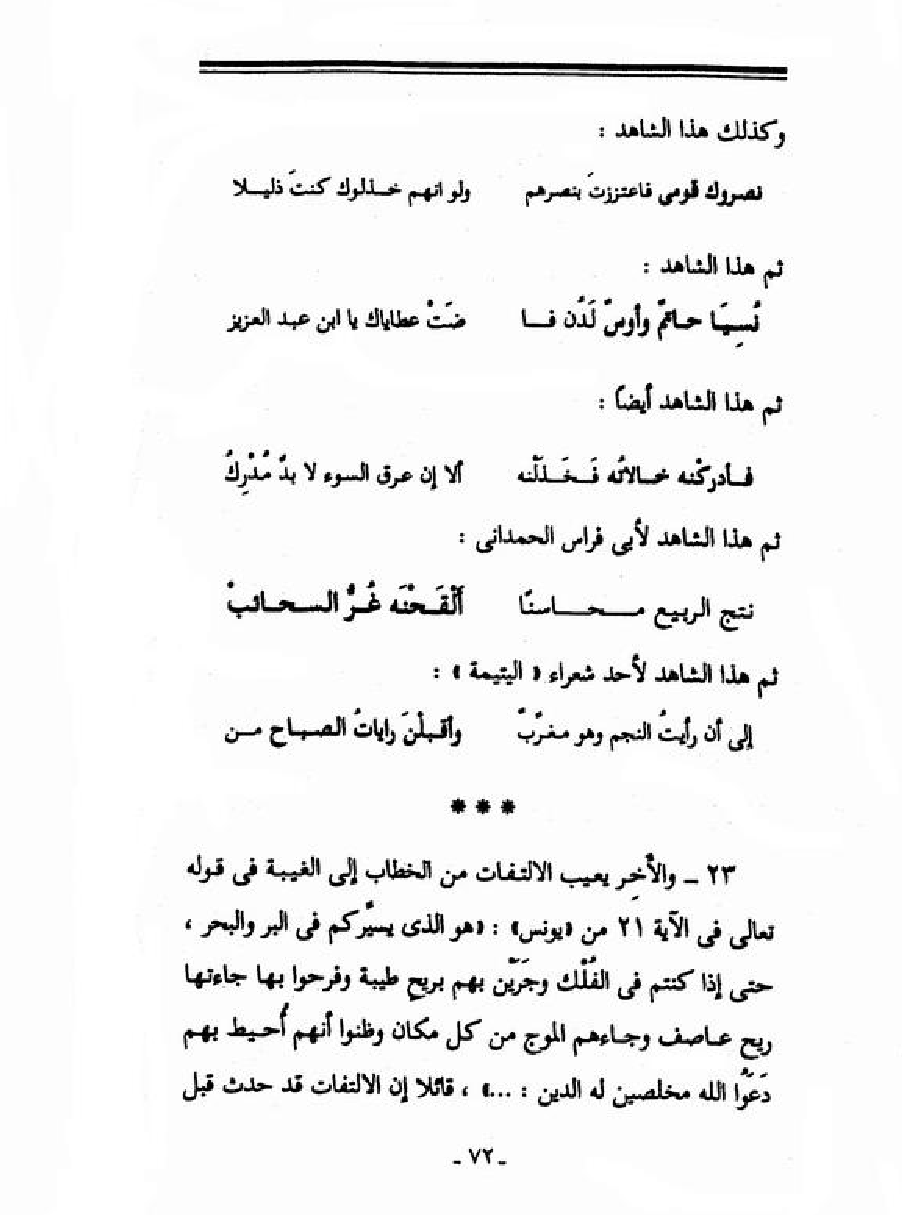 وكذلك هذا الشاهد :
نصروك قومى فاعتززتَ بنصرهم ولو انهم خـذلوك كنتَ ذليـلا
ثم هذا الشاهد :
نُسِيَا حـاتمٌ وأوسٌ لَدُن فـا ضَتْ عطاياك يا ابن عبد العزيز
ثم هذا الشاهد أيضًا :
فـأدركْنه خـالاتُه فَـخَـذَلْنه ألا إن عرق السوء لا بدَّ مُدْرِكُ
ثم هذا الشاهد لأبى فراس الحمدانى :
نتج الربيع مـحـاسنًا ألْقَـحْنَه غُرُّ السـحـائبْ
ثم هذا الشاهد لأحد شعراء « اليتيمة » :
إلى أن رأيتُ النجم وهو مغرّبٌ وأقـبلْنَ راياتُ الصبـاح مـن
* * *
٢٣ ـ والأخِر يعيب الالتفات من الخطاب إلى الغيبة فى قوله
تعالى فى الآية ٢١ من «يونس» : «هو الذى يسيّركم فى البر والبحر ،
حتى إذا كنتم فى الفُلْك وجَرَيْن بهم بريحٍ طيبة وفرحوا بها جاءتها
ريح عـاصف وجـاءهم الموج من كل مكان وظنوا أنهم أُحـيط بهم
دَعَوُا الله مخلصين له الدين : ...» ، قائلا إن الالتفات قد حدث قبل
ـ ٧٢ ـ